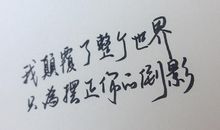 我顛覆了整个世界
只為擺正你的倒影